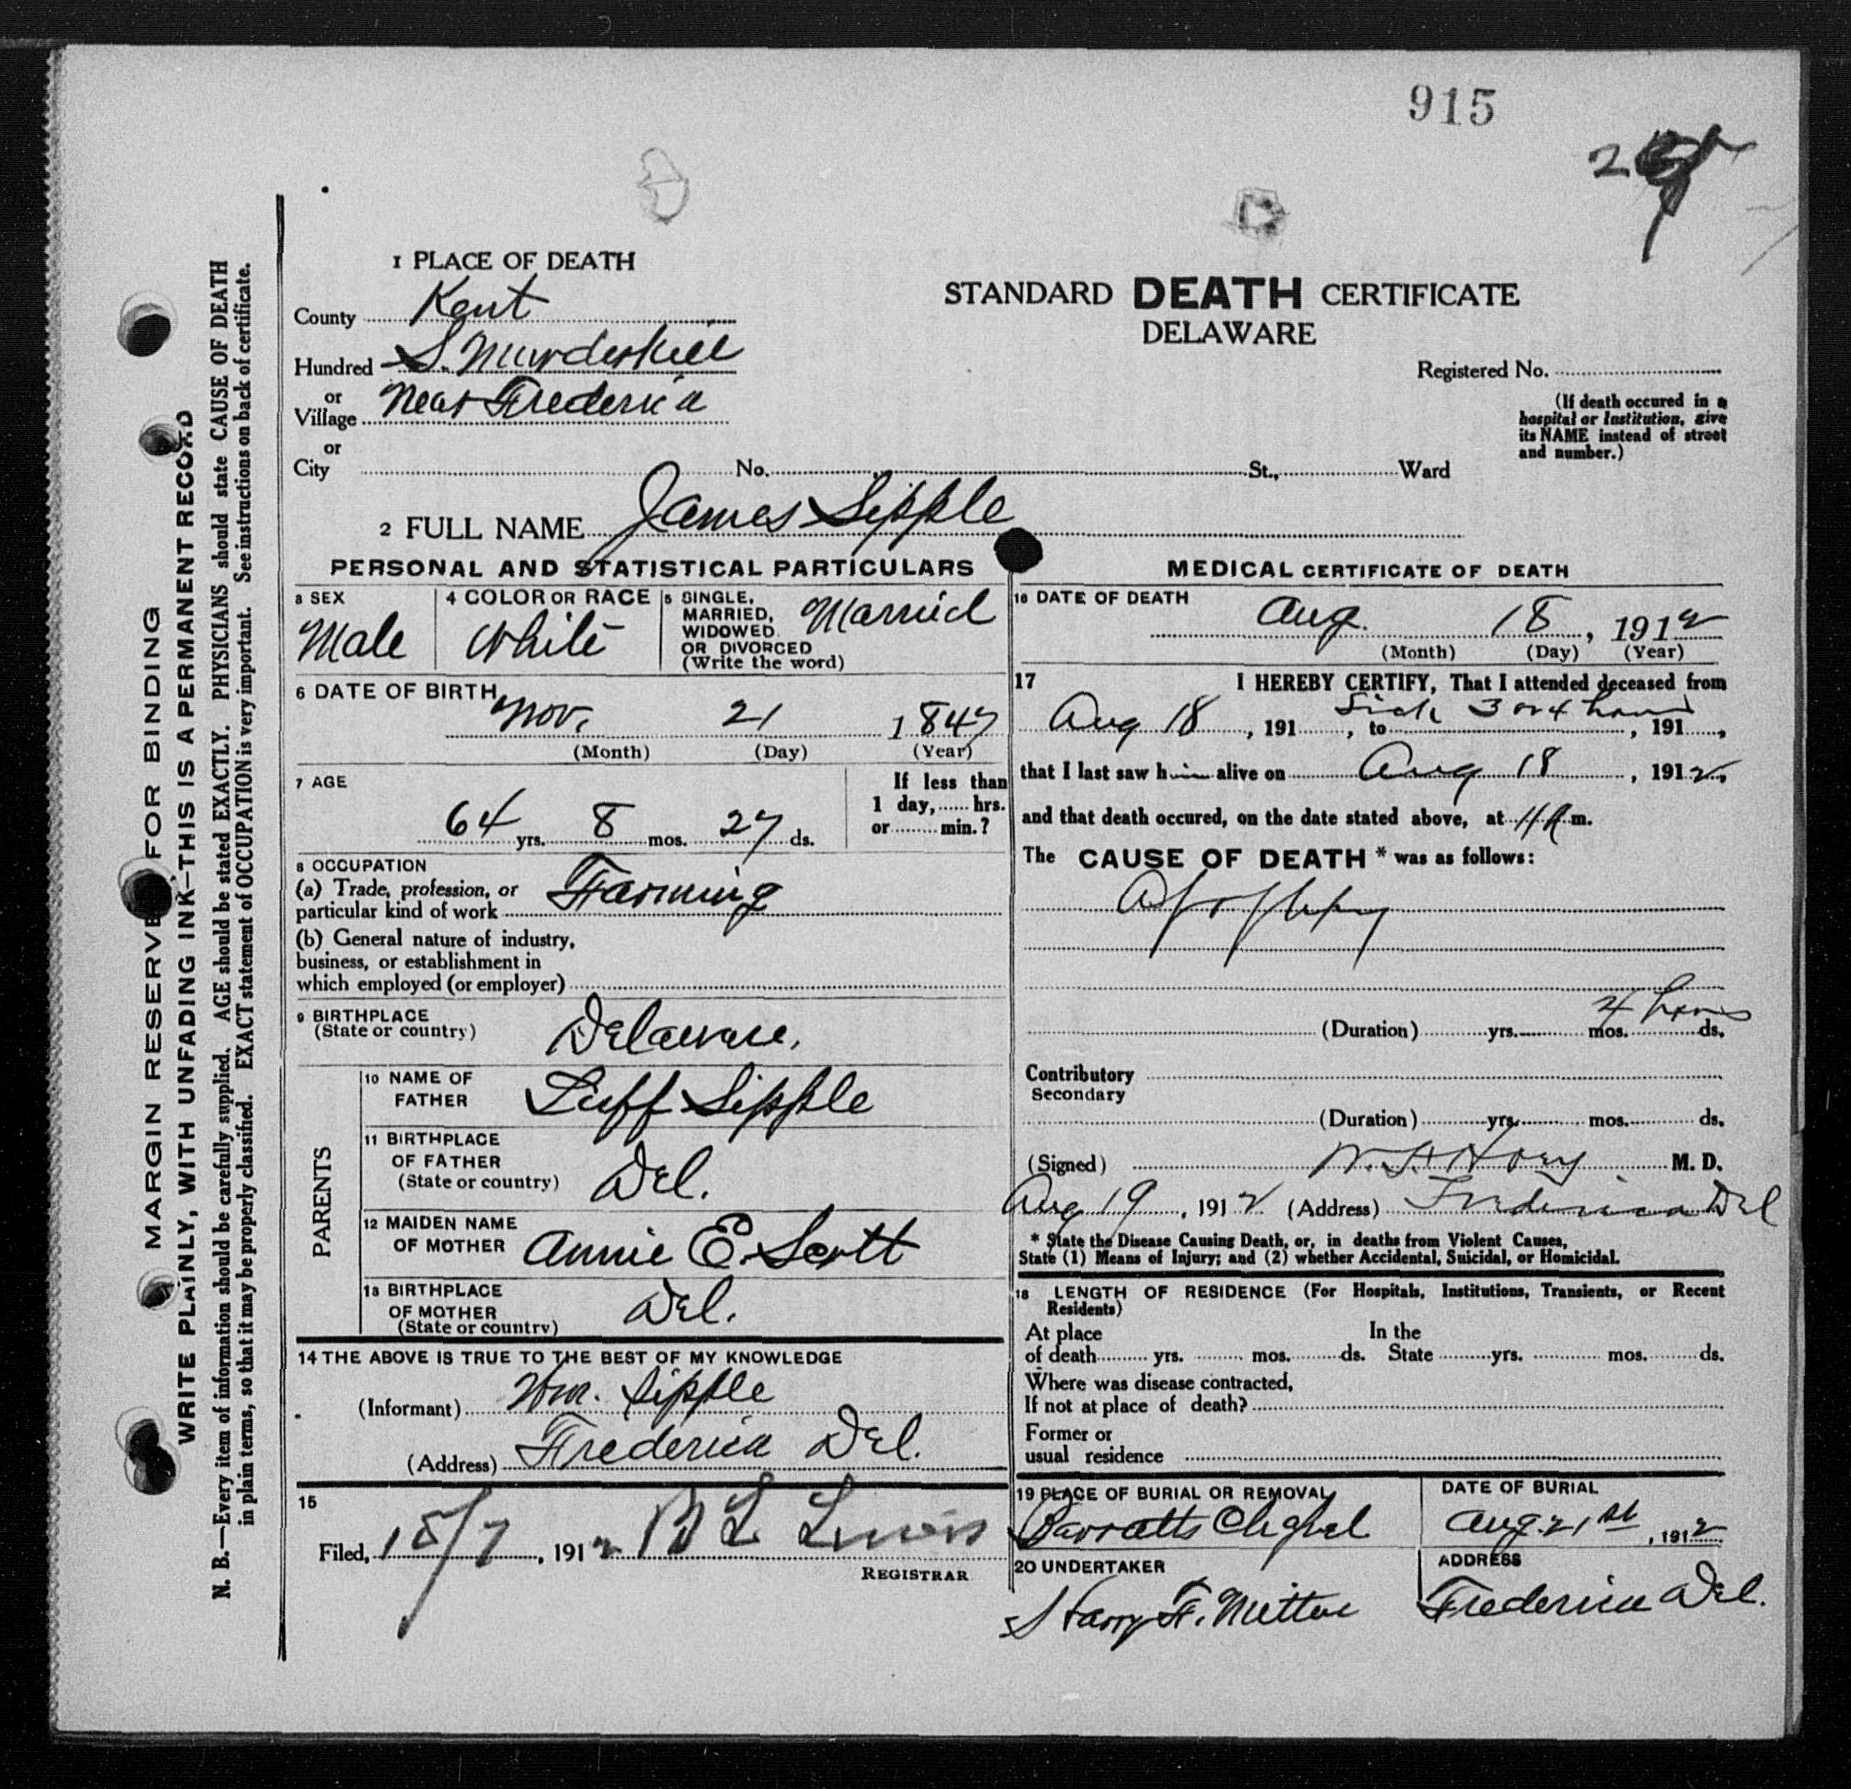 915
1 PLACE OF DEATH
County Kent
Hundred S. Murderkill
or
Village Near Frederica
or
City No. St., Ward
STANDARD DEATH CERTIFICATE
DELAWARE
Registered No.
(If death occured in a
hospital or Institution, give
its NAME instead of street
and number.)
2 FULL NAME James Sipple
PERSONAL AND STATISTICAL PARTICULARS
3 SEX
Male
4 COLOR OR RACE
White
5 SINGLE,
MARRIED,
WIDOWED
OR DIVORCED
(Write the word)
Married
6 DATE OF BIRTH
Nov. 21 1847
(Month) (Day) (Year)
7 AGE
64 yrs. 8 mos. 27 ds.
If less than
1 day, hrs.
or min.?
8 OCCUPATION
(a) Trade, profession, or
particular kind of work Farming
(b) General nature of industry,
business, or establishment in
which employed (or employer)
9 BIRTHPLACE
(State or country) Delaware.
PARENTS
10 NAME OF
FATHER Luff Sipple
11 BIRTHPLACE
OF FATHER
(State or country) Del.
12 MAIDEN NAME
OF MOTHER Annie E. Scott
13 BIRTHPLACE
OF MOTHER
(State or country) Del.
14 THE ABOVE IS TRUE TO THE BEST OF MY KNOWLEDGE
(Informant) Wm. Sipple
(Address) Frederica Del.
15
Filed, , 1912 Lewis
REGISTRAR
MEDICAL CERTIFICATE OF DEATH
16 DATE OF DEATH
Aug. 18, 1912
(Month) (Day) (Year)
17 I HEREBY CERTIFY, That I attended deceased from
Sick 3 or 4 hours
Aug 18, 191 , to , 191 ,
that I last saw him alive on Aug 18, 1912.
and that death occured, on the date stated above, at m.
The CAUSE OF DEATH * was as follows:
Apoplexy
4 hours
(Duration) yrs. mos. ds.
Contributory
Secondary
(Duration) yrs. mos. ds.
(Signed) M. D.
Aug 19, 1912 (Address) Frederica Del
* State the Disease Causing Death, or, in deaths from Violent Causes,
State (1) Means of Injury; and (2) whether Accidental, Suicidal, or Homicidal.
18 LENGTH OF RESIDENCE (For Hospitals, Institutions, Transients, or Recent
Residents)
At place In the
of death yrs. mos. ds. State yrs. mos. ds.
Where was disease contracted,
If not at place of death?
Former or
usual residence
19 PLACE OF BURIAL OR REMOVAL
Barratts Chapel
DATE OF BURIAL
Aug. 21st, 1912
20 UNDERTAKER
Harry F.
ADDRESS
Frederica Del.
MARGIN RESERVED FOR BINDING
WRITE PLAINLY, WITH UNFADING INK—THIS IS A PERMANENT RECORD
N. B.—Every item of information should be carefully supplied. AGE should be stated EXACTLY. PHYSICIANS should state CAUSE OF DEATH
in plain terms, so that it may be properly classified. EXACT statement of OCCUPATION is very important. See instructions on back of certificate.